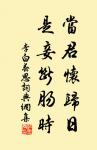 當君懷歸日
是妾斷腸時
李白春思詞典網集